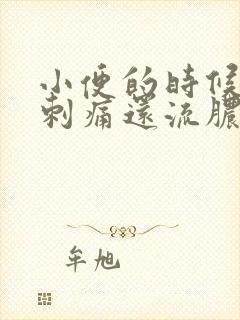 小便的時候
刺痛還流膿
牟旭